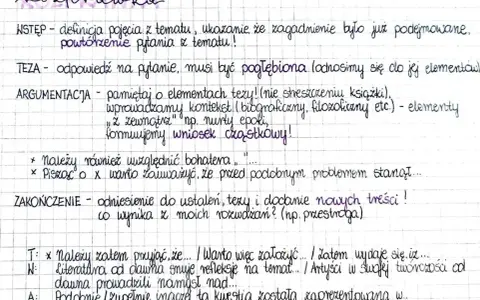 WSTĘP - definicja pojęcia z tematu, ukazanie, że zagadnienie było już podejmowane,
powtórzenie pytania z tematu!
TEZA - odpowiedź na pytanie, musi być pogłębiona (odnosimy się do jej elementów)
ARGUMENTACJA - pamiętaj o elementach tezy! (nie streszczeniu książki),
wprowadzamy kontekst (biograficzny, filozoficzny etc.) - elementy
"z zewnątrz" np. nurty epoki,
formułujemy wniosek cząstkowy!
* Należy również uwzględnić bohatera „ "...
* Pisząc o x warto zauważyć, że przed podobnym problemem stanął...
ZAKOŃCZENIE - odniesienie do ustaleń, tezy i dodanie nowych treści!
co wynika z moich rozważań? (np. przestroga)
T: * Należy zatem przyjąć, że... / Warto więc założyć... / Zatem wydaje się, iż...
N: Literatura od dawna snuje refleksje na temat... / Artyści w swojej twórczości od
dawna prowadzili namysł nad...
A: Podobnie / zupełnie inaczej ta kwestia została zaprezentowana w...